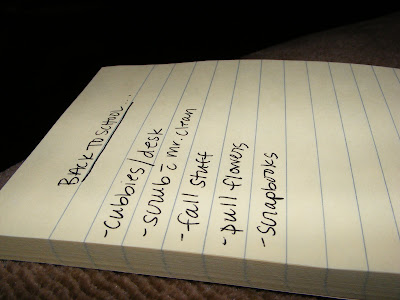 BACK TO SCHOOL...
- cubbies/desk
- scrub c̄ mr. clean
- fall stuff
- pull flowers
- scrapbooks